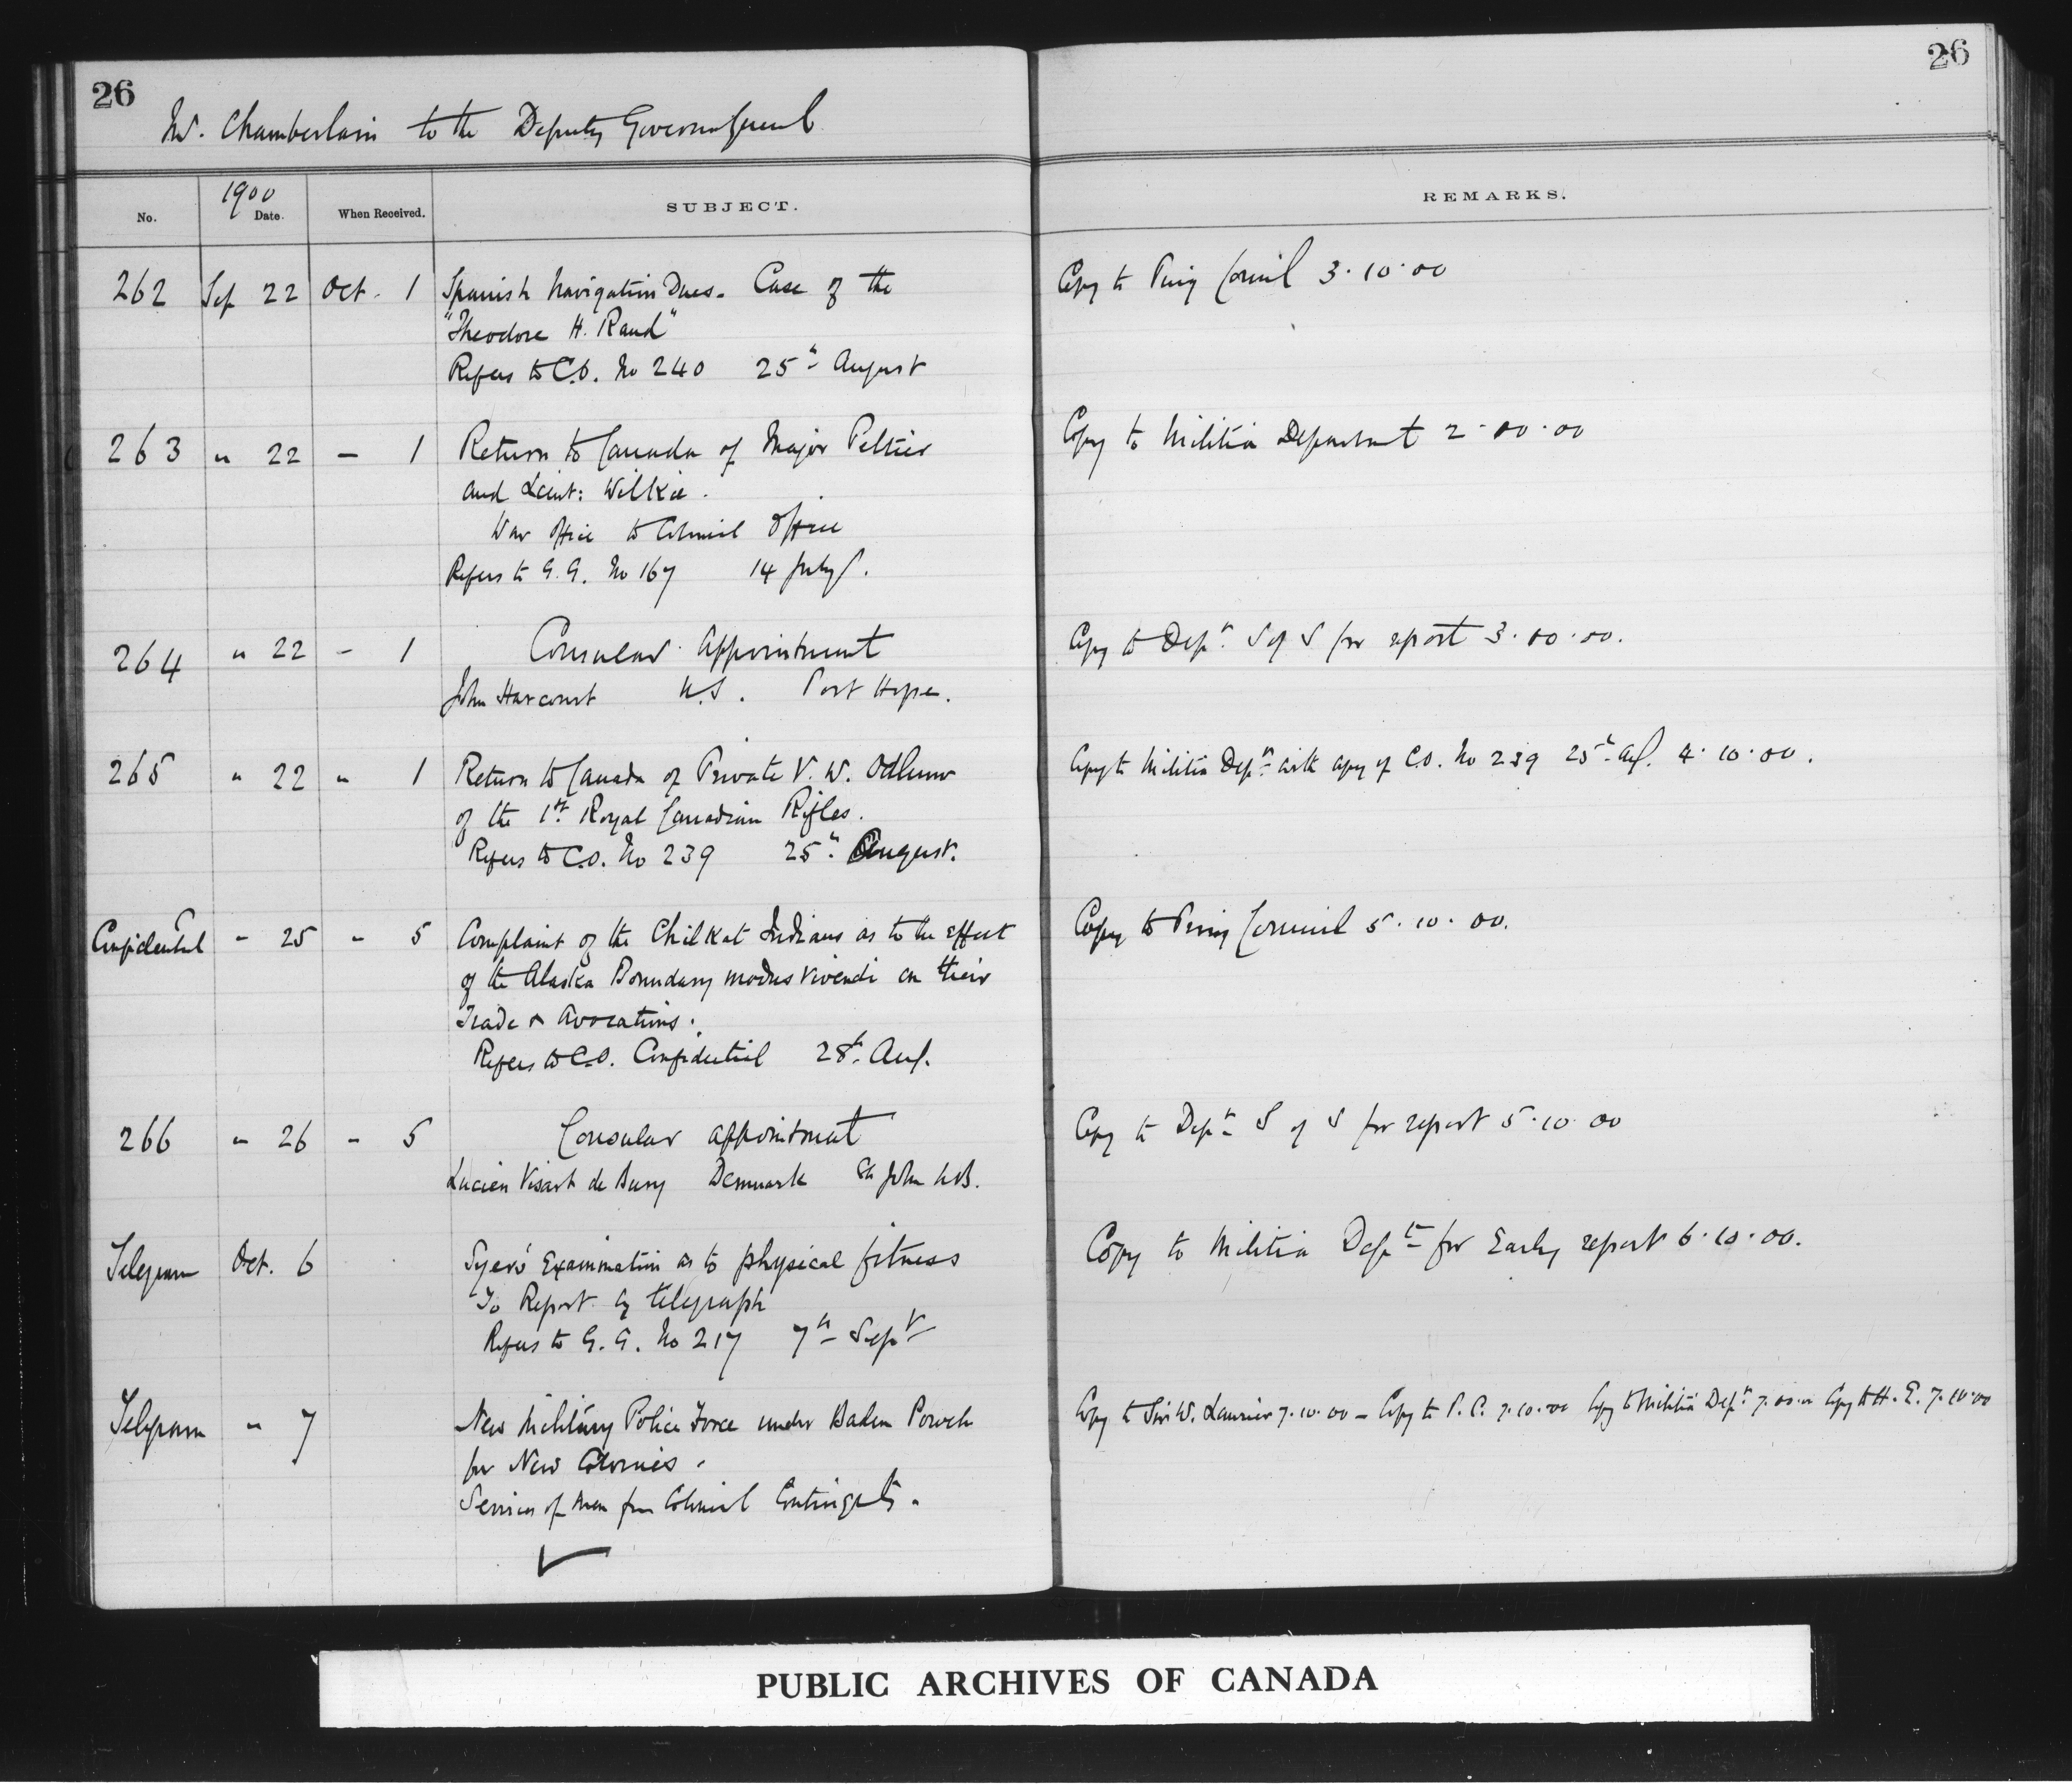 26
26
Mr. Chamberlain to the Deputy Governor General
No.
1900
Date.
When Received.
SUBJECT.
REMARKS.
262 Sep 22 Oct. 1 Spanish Navigation Dues. Case of the
"Theodore H. Rand"
Refers to C.O. No 240 25th August
Copy to Privy Council 3.10.00
263 " 22 - 1 Return to Canada of Major Peltier
and Lieut: Wilkie.
War Office to Colonial Office
Refers to G.G. No 167 14 July.
Copy to Militia Department 2.10.00
264 " 22 - 1 Consular Appointment
John Harcourt U.S. Port Hope.
Copy to Dept. S of S for report 3.10.00.
265 " 22 " 1 Return to Canada of Private V. W. Odlum
of the 1st Royal Canadian Rifles.
Refers to C.O. No 239 25th August.
Copy to Militia Dept. with copy of C.O. No 239 25th Aug. 4.10.00.
Confidential - 25 - 5 Complaint of the Chilkat Indians as to the effect
of the Alaska Boundary modus vivendi on their
Trade & Avocations.
Refers to C.O. Confidential 28th Aug.
Copy to Privy Council 5.10.00.
266 " 26 - 5 Consular appointment
Lucien Visart de Bury Denmark St. John N.B.
Copy to Dept. S of S for report 5.10.00
Telegram Oct. 6 Examination as to physical fitness
To Report by telegraph
Refers to G.G. No 217 7th Sept
Copy to Militia Dept for Early report 6.10.00.
Telegram " 7 New Military Police Force under Baden Powell
for New Colonies.
Services of men from Colonial Contingents.
Copy to Sir W. Laurier 7.10.00 - Copy to P.C. 7.10.00 Copy to Militia Dept. 7.10.00 Copy to H.E. 7.10.00
PUBLIC ARCHIVES OF CANADA